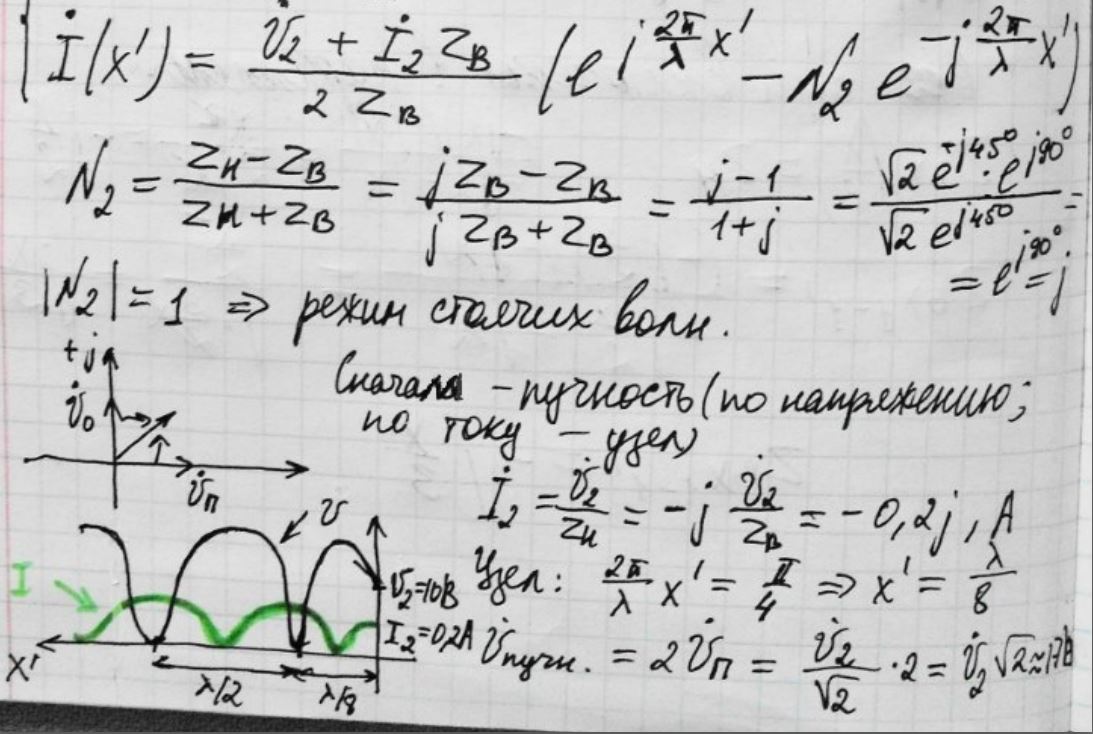 İ(x') = (U̇₂ + İ₂ Zв)/(2 Zв) (e^{j (2π/λ) x'} − N₂ e^{−j (2π/λ) x'})
N₂ = (Zн − Zв)/(Zн + Zв) = (j Zв − Zв)/(j Zв + Zв) = (j − 1)/(1 + j) = (√2 e^{j45°} · e^{j90°})/(√2 e^{j45°}) =
= e^{j90°} = j
|N₂| = 1 ⇒ режим стоячих волн.
+j
U̇₀
U̇п
Сначала – пучность (по напряжению;
по току – узел)
İ₂ = U̇₂/Zн = −j U̇₂/Zв = −0,2j, А
Узел: (2π/λ) x' = π/4 ⇒ x' = λ/8
U̇пучн. = 2 U̇п = U̇₂/√2 · 2 = U̇₂ √2 ≈ 17В
U
I
U₂=10В
I₂=0,2А
x'
λ/2
λ/8